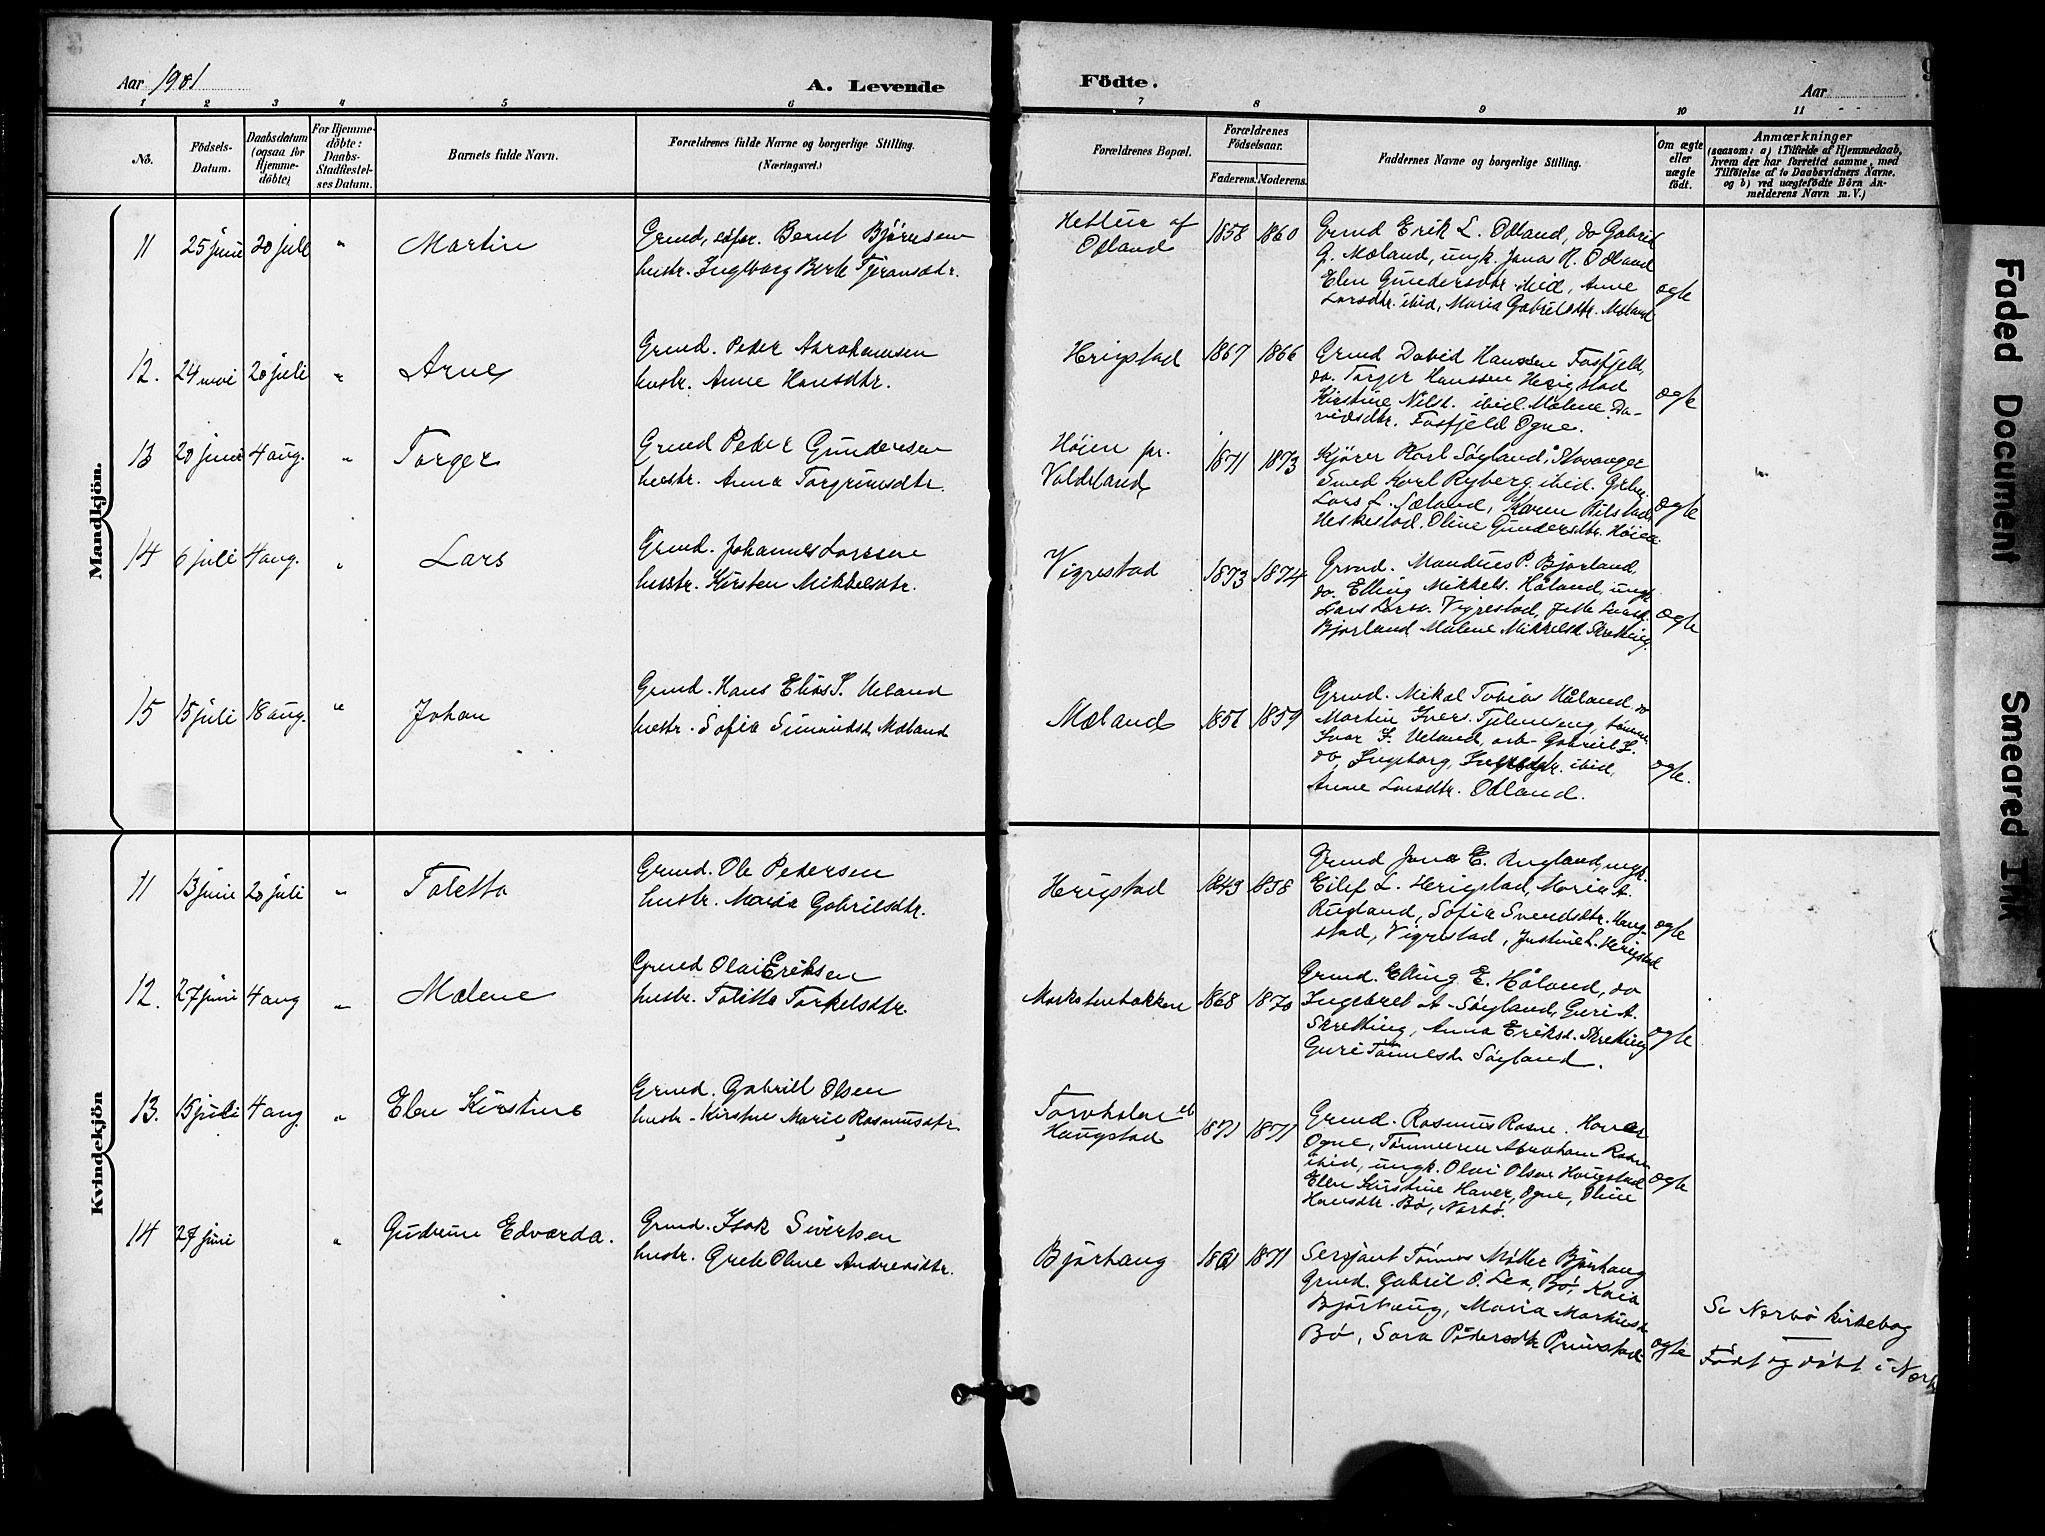 Aar 1901
A. Levende
Födte.
Aar
9
1 2 3 4 5 6 7 8 9 10 11
No.
Födsels-
Datum.
Daabsdatum
(ogsaa for
Hjemme-
döbte)
For Hjemme-
döbte:
Daabs-
Stadfæstel-
ses Datum.
Barnets fulde Navn.
Forældrenes fulde Navne og borgerlige Stilling.
(Næringsvei.)
Forældrenes Bopæl.
Forældrenes
Födselsaar.
Faderens. Moderens.
Faddernes Navne og borgerlige Stilling.
Om ægte
eller
uægte
födt.
Anmærkninger
(saasom: a) i Tilfælde af Hjemmedaab,
hvem der har forrettet samme, med
Tilföielse af to Daabsvidners Navne,
og b) ved uægtefödte Börn An-
melderens Navn m. V.)
Mandkjön.
11 25 juni 20 juli " Martin
Grmd, Bernt Bjørnsen
hustr. Ingeborg Berte Tjeransdtr.
Odland
1858 1860
Grmd Erik L. Odland, do Gabriel
G. Mæland, ungk. Jonas R. Odland
Elen Gundersdtr. ibid, Anne
Larsdtr. ibid, Maria Gabrielsdtr. Mæland
ægte
12. 24 mai 20 juli " Arne
Grmd. Peder Abrahamsen
hustr. Anne Hansdtr.
Herigstad
1867 1866
Grmd David Hanssen Fosfjeld,
do. Torger Hanssen Herigstad
Kirstine Nilsd. ibid. Malene Da-
vidsdtr. Fosfjeld Ogne.
ægte
13 20 juni 4 aug. " Torger
Grmd Peder Gundersen
hustr. Anna Torgrimsdtr.
Høien pr.
Valdeland
1871 1873
Kjører Karl Søyland, Stavanger
Smed Karl Ryberg ibid.
Lars L. Sæland, Karen
Heskestad. Oline Gundersdtr. Høien
ægte
14 6 juli 4 aug. " Lars
Grmd. Johannes Larssen
hustr. Kirsten Mikkelsdtr.
Vigrestad
1873 1874
Grmd. Mandius P. Bjorland
do. Elling Mikkels. Håland, ungk
Lars Larss. Vigrestad,
Bjorland Malene Mikkelsd. Skretting.
ægte
15 15 juli 18 aug. " Johan
Grmd. Hans Elias S. Ueland
hustr. Sofia Simunds. Mæland
Mæland
1859
Grmd. Mikal Tobias Håland do
Martin Ivers.
Ivar F. Ueland, arb- Gabriel H.
do, Ingeborg, ibid,
Anne Larsdtr. Odland.
ægte.
Kvindekjön
11 13 juni 20 juli " Toletta
Grmd. Ole Pedersen
hustr. Maria Gabrielsdtr.
Herigstad
1843 1858
Grmd Jonas E. Rugland, ungk.
Eilef L. Herigstad, Maria A.
Rugland, Sofia Svendsdtr. Haug-
stad, Vigrestad, Justine L. Herigstad
ægte
12. 27 juni 4 aug " Malene
Grmd Olai Eriksen
hustr. Toletta Torkelsdtr.
Markstenbakken
1868 1870
Grmd. Elling E. Håland, do
Ingebret A. Søyland, Guri A.
Skretting, Anna Eriksd. Skretting
Guri Tønnesd. Søyland.
ægte
13. 15 juli 4 aug " Elen Kirstine
Grmd. Gabriel Olsen
hustr. Kirstine Marie Rasmusdtr.
Haugstad
1871 1871
Grmd. Rasmus Rasm. Haver
Ogne, Tømmerm Abraham Rasm
ibid, ungk. Olai Olsen Haugstad
Elen Kirstine Haver, Ogne, Oline
Hansdtr. Bø, Nærbø.
ægte
14 27 juni " Gudrun Edvarda.
Grmd. Isak Sivertsen
hustr. Grete Oline Andreasdtr.
Bjørhaug
1861 1871
Sersjant Tønnes Møller Bjørhaug
Grmd. Gabriel O. Lea, Bø, Kaia
Bjørhaug, Maria Markusd.
Bø, Sara Pedersdtr.
ægte
Se Nærbø kirkebog
Født og døbt i Nærb
Faded Document
Smeared Ink